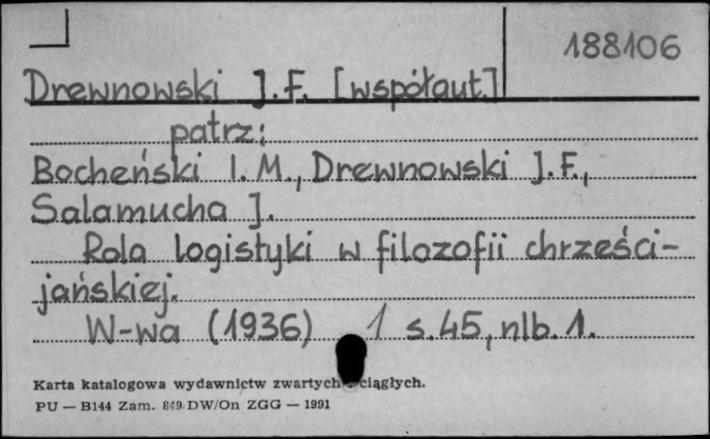 188106
Drewnowski J. F. [współaut.]
patrz:
Bocheński I. M., Drewnowski J. F.,
Salamucha J.
Rola logistyki w filozofii chrześci-
jańskiej.
W-wa (1936) 1 s. 45, nlb. 1.
Karta katalogowa wydawnictw zwartych ciągłych.
PU — B144 Zam. DW/On ZGG — 1991